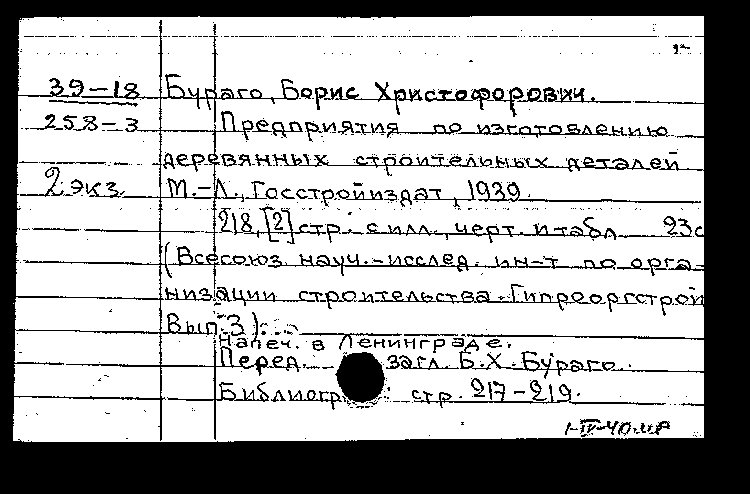 39-18 Бураго, Борис Христофорович.
258-3 Предприятия по изготовлению
деревянных строительных деталей
2 экз М.-Л., Госстройиздат, 1939.
218, [2] стр. с илл., черт. и табл. 23с
(Всесоюз науч.-исслед. ин-т по орга-
низации строительства. Гипрооргстрой
Вып. 3).
Напеч. в Ленинграде.
Перед загл. Б.Х. Бураго.
Библиогр стр. 217-219.
1-IV-40